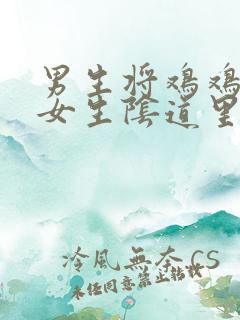 男生将鸡鸡
女生阴道里
冷風無奈 CS
未经同意禁止转载